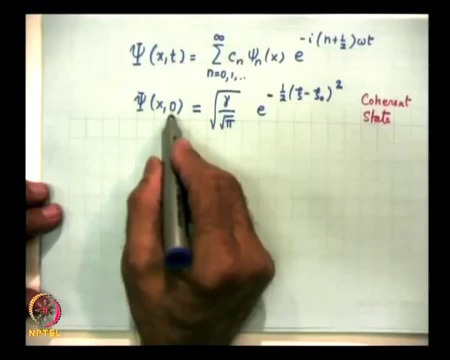 Ψ(x,t) = ∑_{n=0,1,..}^{∞} c_n ψ_n(x) e^{-i(n+½)ωt}
Ψ(x,0) = √(γ/√π) e^{-½(ξ-ξ₀)²} Coherent State
NPTEL